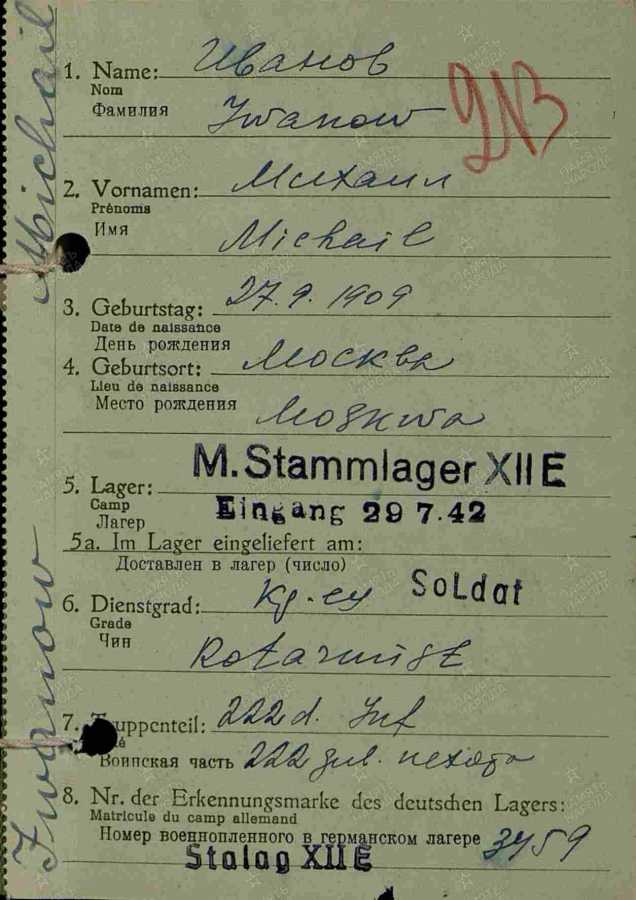 1. Name: Иванов
Nom
Фамилия
Iwanow
213
2. Vornamen: Михаил
Prénoms
Имя
Michail
3. Geburtstag: 27.9.1909
Date de naissance
День рождения
4. Geburtsort: Москва
Lieu de naissance
Место рождения
Moskwa
M. Stammlager XII E
5. Lager:
Camp
Лагер
Eingang 29 7.42
5a. Im Lager eingeliefert am:
Доставлен в лагер (число)
6. Dienstgrad: Soldat
Grade
Чин
Rotarmist
7. Truppenteil: 222 d. Inf
Воинская часть 222 див. пехота
8. Nr. der Erkennungsmarke des deutschen Lagers:
Matricule du camp allemand
Номер военнопленного в германском лагере 3459
Stalag XII E
Iwanow Michail